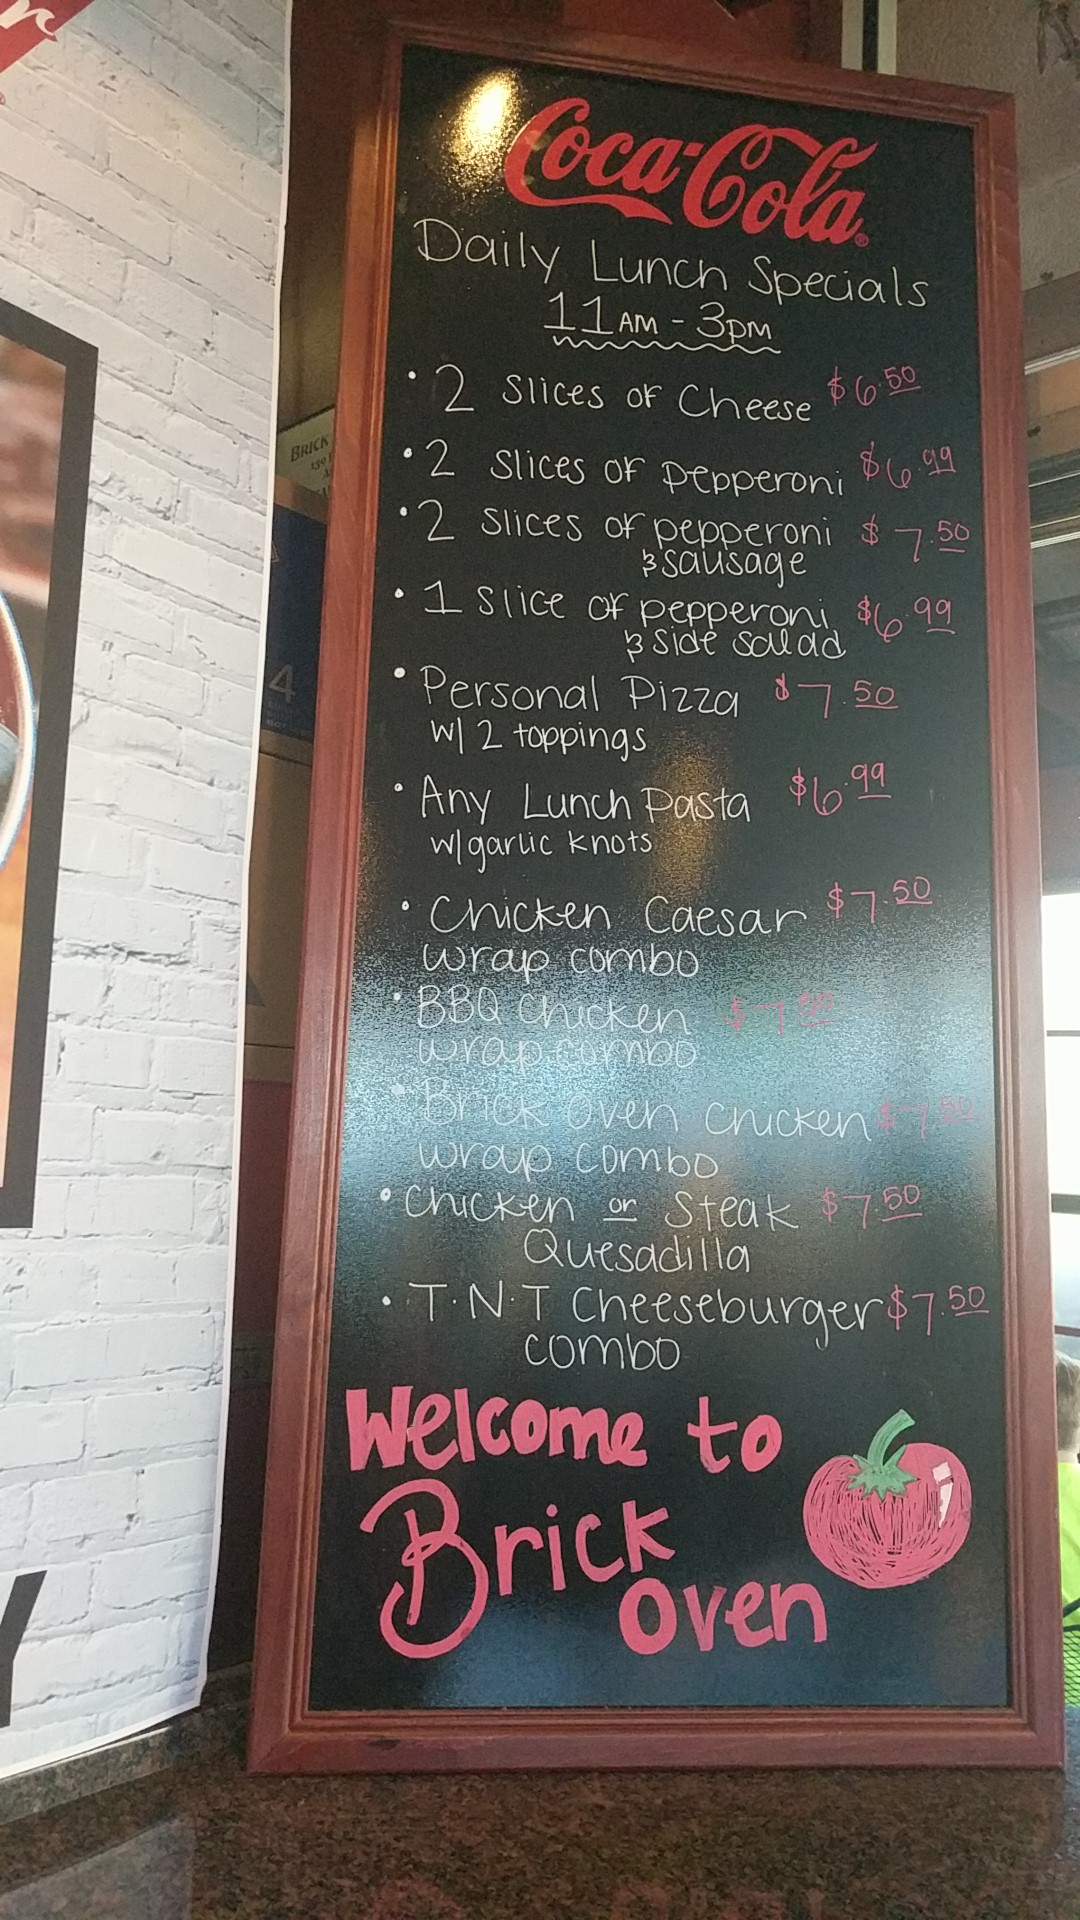 Coca-Cola®
Daily Lunch Specials
11AM - 3PM
• 2 slices of Cheese $6.50
• 2 slices of pepperoni $6.99
• 2 slices of pepperoni $7.50
& sausage
• 1 slice of pepperoni $6.99
& side salad
• Personal Pizza $7.50
w/ 2 toppings
• Any Lunch Pasta $6.99
w/garlic knots
• Chicken Caesar $7.50
wrap combo
• BBQ Chicken $7.50
wrap combo
• Brick oven chicken $7.50
wrap combo
• Chicken or Steak $7.50
Quesadilla
• T.N.T Cheeseburger $7.50
combo
Welcome to
Brick
oven
BRICK
4
Y